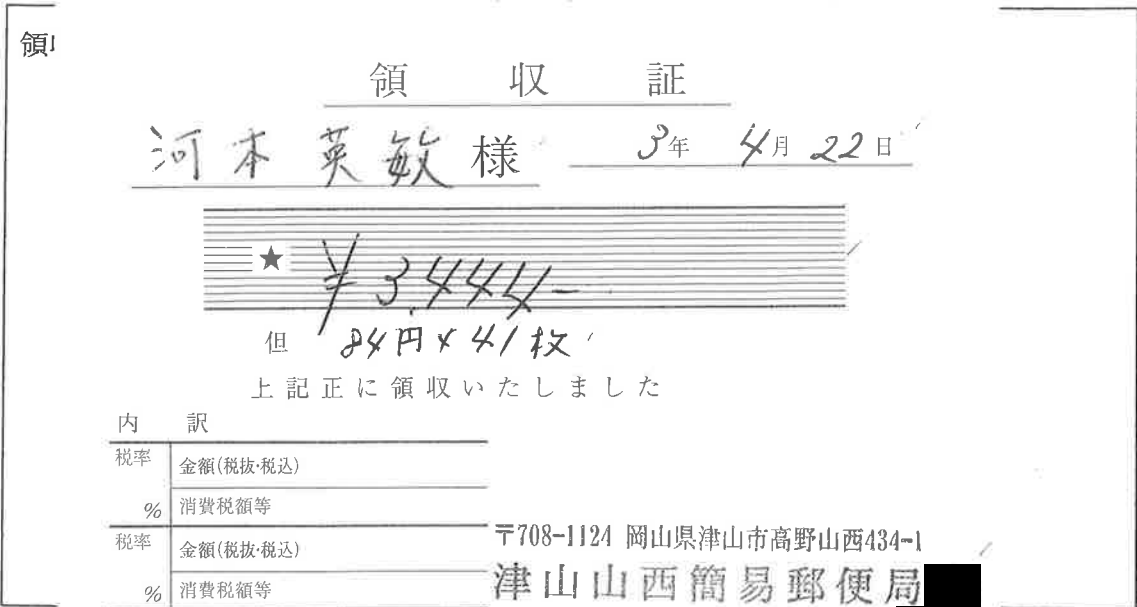 領収
領収証
河本 英敏 様 3年 4月 22日
★ ¥3,444-
但 84円×41枚
上記正に領収いたしました
内 訳
税率 金額(税抜・税込)
% 消費税額等
税率 金額(税抜・税込)
% 消費税額等
〒708-1124 岡山県津山市高野山西434-1
津山山西簡易郵便局